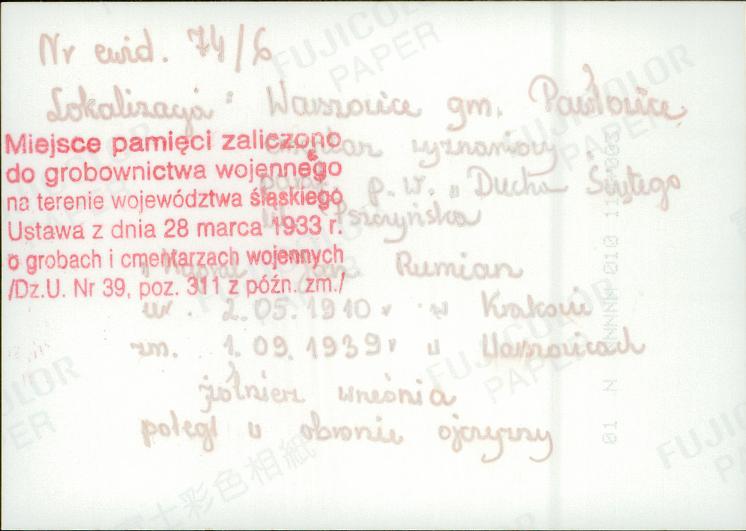 Nr ewid. 74/6
Lokalizacja: Warszowice gm. Pawłowice
cmentarz wyznaniowy
p.w. "Ducha Świętego
ul. Pszczyńska
Miejsce pamięci zaliczono
do grobownictwa wojennego
na terenie województwa śląskiego
Ustawa z dnia 28 marca 1933 r.
o grobach i cmentarzach wojennych
/Dz.U. Nr 39, poz. 311 z późn. zm./
Jana Rumian
ur. 2.05.1910 r w Krakowie
zm. 1.09.1939 r w Warszowicach
żołnierz września
poległ w obronie ojczyzny
FUJICOLOR
PAPER
FUJICOLOR
PAPER
FUJICOLOR
PAPER
FUJICOLOR
PAPER
士彩色相紙